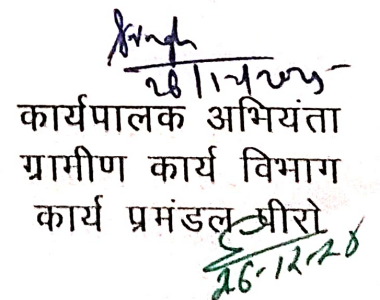 कार्यपालक अभियंता
ग्रामीण कार्य विभाग
कार्य प्रमंडल पीरो
26-12-20